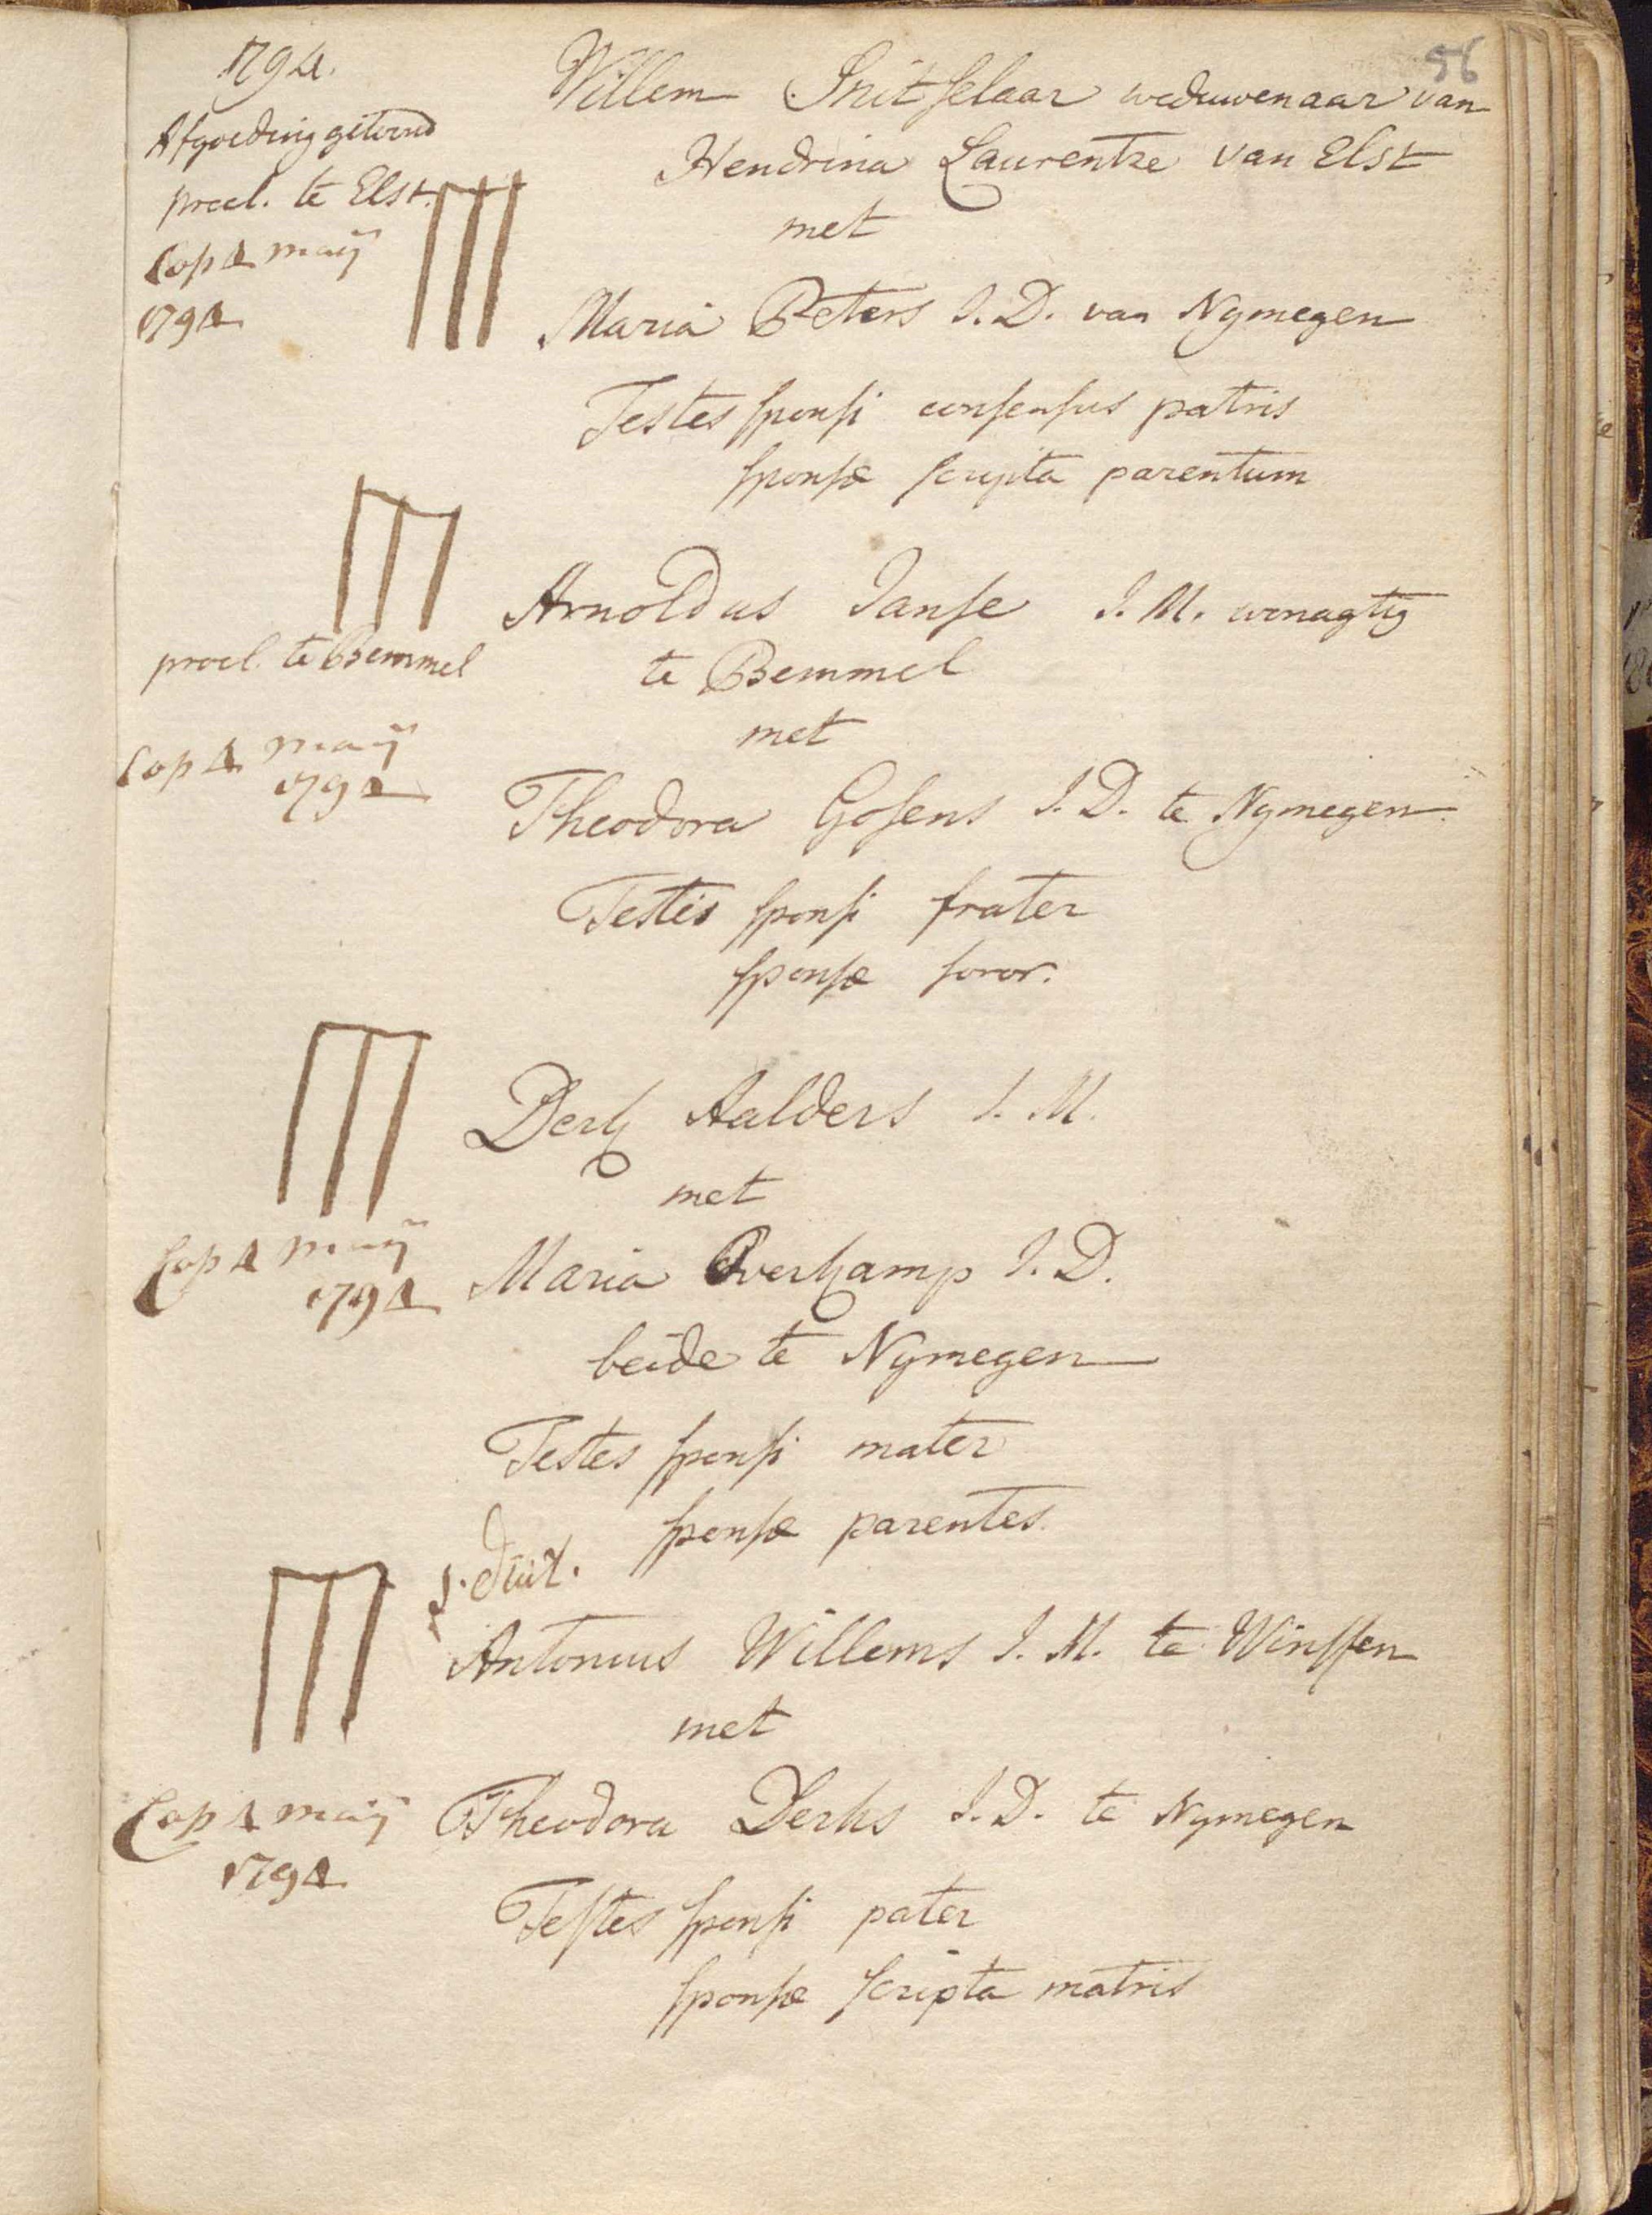 56
1794.
Afgoeding getoond
procl. te Elst.
Cop 4 maÿ
1794
Willem Snitselaar weduwenaar van
Hendrina Laurentze van Elst
met
Maria Peters J. D. van Nymegen
Testes sponsi consensus patris
sponsæ scripta parentum
procl. te Bemmel
Cop 4 maÿ
1794
Arnoldus Janse J. M. wonagtig
te Bemmel
met
Theodora Gosens J. D. te Nymegen
Testis sponsi frater
sponsæ soror.
Cop 4 maÿ
1794
Derk Aalders J. M.
met
Maria Overkamp J. D.
beide te Nymegen
Testes sponsi mater
sponsæ parentes.
Cop 4 maÿ
1794
Antonius Willems J. M. te Winssen
met
Theodora Derks J. D. te Nymegen
Testes sponsi pater
sponsæ scripta matris